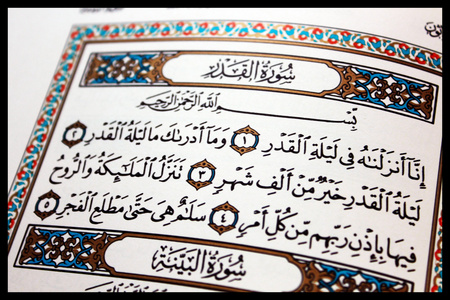 سُورَةُ القَدْرِ
بِسْمِ ٱللَّهِ ٱلرَّحْمَٰنِ ٱلرَّحِيمِ
إِنَّآ أَنزَلْنَٰهُ فِى لَيْلَةِ ٱلْقَدْرِ ١ وَمَآ أَدْرَىٰكَ مَا لَيْلَةُ ٱلْقَدْرِ ٢
لَيْلَةُ ٱلْقَدْرِ خَيْرٌ مِّنْ أَلْفِ شَهْرٍ ٣ تَنَزَّلُ ٱلْمَلَٰٓئِكَةُ وَٱلرُّوحُ
فِيهَا بِإِذْنِ رَبِّهِم مِّن كُلِّ أَمْرٍ ٤ سَلَٰمٌ هِىَ حَتَّىٰ مَطْلَعِ ٱلْفَجْرِ ٥
سُورَةُ البَيِّنَةِ